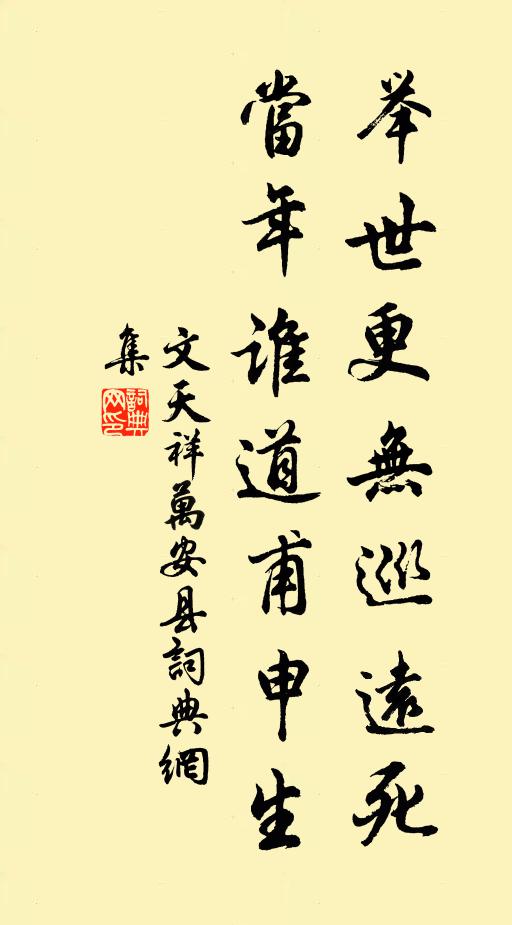 举世更無巡遠死
當年誰道甫申生
文天祥萬安县詞典網
集
詞典网印